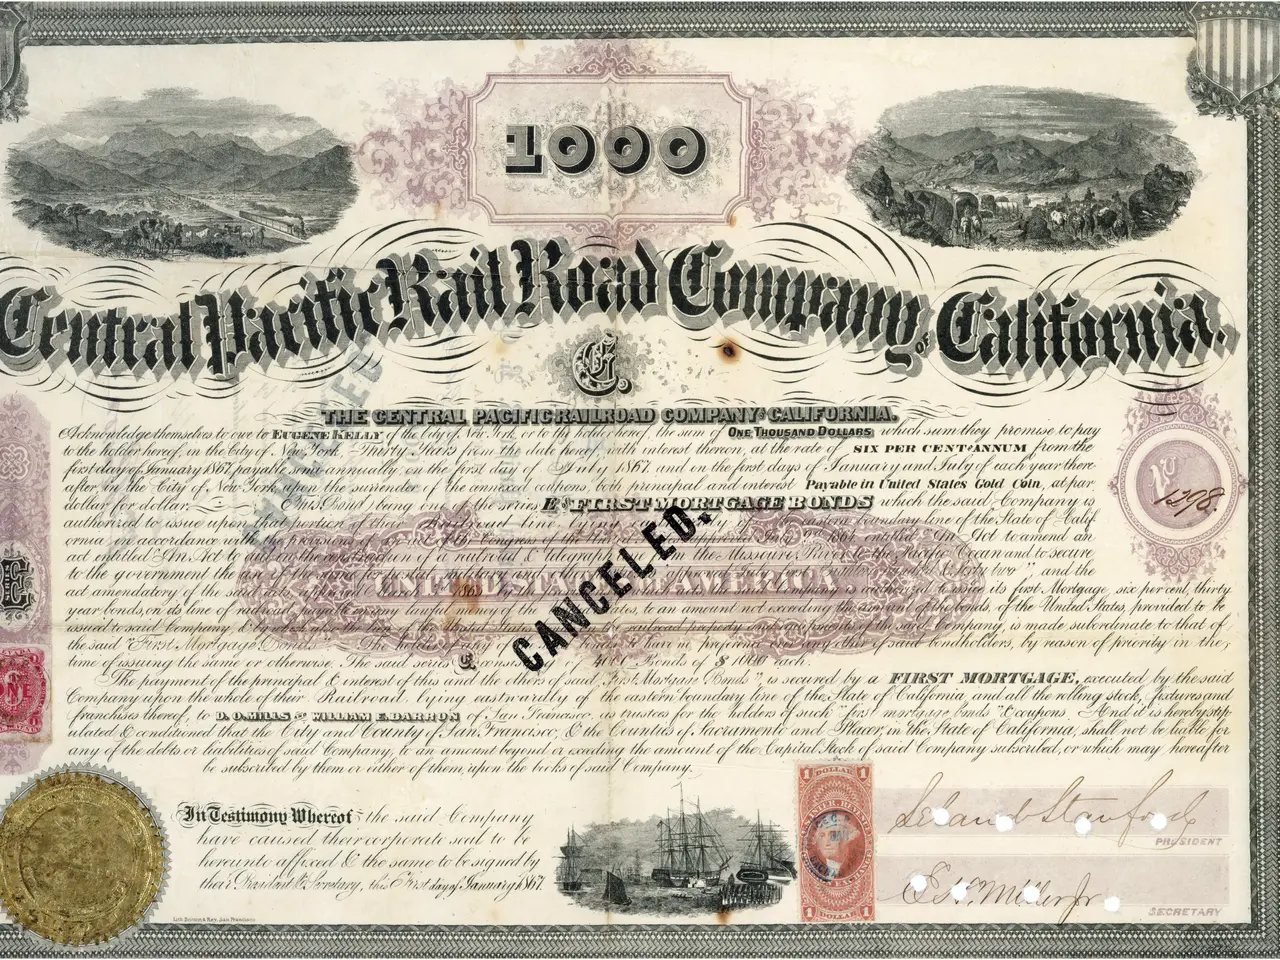 1000
Central Pacific Rail Road Company, of California.
E.
THE CENTRAL PACIFIC RAILROAD COMPANY OF CALIFORNIA.
Acknowledge themselves to owe to EUGENE KELLY of the City of New York or to the holder hereof, the sum of ONE THOUSAND DOLLARS which sum they promise to pay
to the holder hereof, in the City of New York Thirty Years from the date hereof with interest thereon, at the rate of SIX PER CENT ANNUM from the
first day of January 1867, payable semi annually, on the first day of July 1867, and on the first days of January and July of each year there
after, in the City of New York upon the surrender of the annexed coupons, both principal and interest Payable in United States Gold Coin, at par
dollar for dollar. This Bond being one of the series E of FIRST MORTGAGE BONDS which the said Company is
No
1298.
authorized to issue upon that portion of their Railroad line lying eastern boundary line of the State of Calif
ornia in accordance with the provisions of Congress of the An Act to amend an
act entitled "An Act to aid in the construction of a railroad & telegraph the Missouri River to the Pacific Ocean and to secure
to the government the two" and the
UNITED STATES OF AMERICA
act amendatory of the said its first Mortgage, six per cent, thirty
SERIES
E
year bonds, on its line of railroad to an amount not exceeding the amount of the bonds, of the United States, provided to be
issued to said Company, of the said Company, is made subordinate to that of
the said "First Mortgage Bonds bondholders, by reason of priority in the,
time of issuing the same or otherwise. The said series E. consists of 4000 Bonds of $1000 each.
CANCELED.
The payment of the principal & interest of this and the others of said "First Mortgage Bonds", is secured by a FIRST MORTGAGE, executed by the said
ONE
Company upon the whole of their Railroad lying eastwardly of the western boundary line of the State of California, and all the rolling stock, fixtures and
franchises thereof, to D. O. MILLS and WILLIAM E. BARRON of San Francisco, as trustees for the holders of such "first mortgage bonds" & coupons. And it is hereby stip
ulated & conditioned that the City and County of San Francisco, & the Counties of Sacramento and Placer, in the State of California, shall not be liable for
any of the debts or liabilities of said Company, to an amount beyond or exceeding the amount of the Capital Stock of said Company subscribed, or which may hereafter
be subscribed by them or either of them, upon the books of said Company.
In Testimony Whereof the said Company
have caused their corporate seal to be
hereunto affixed & the same to be signed by
their President & Secretary, this First day of January 1867.
1 DOLLAR 1
1 DOLLAR 1
Leland Stanford
PRESIDENT
E. H. Miller Jr.
SECRETARY
Lith. Britton & Rey, San Francisco